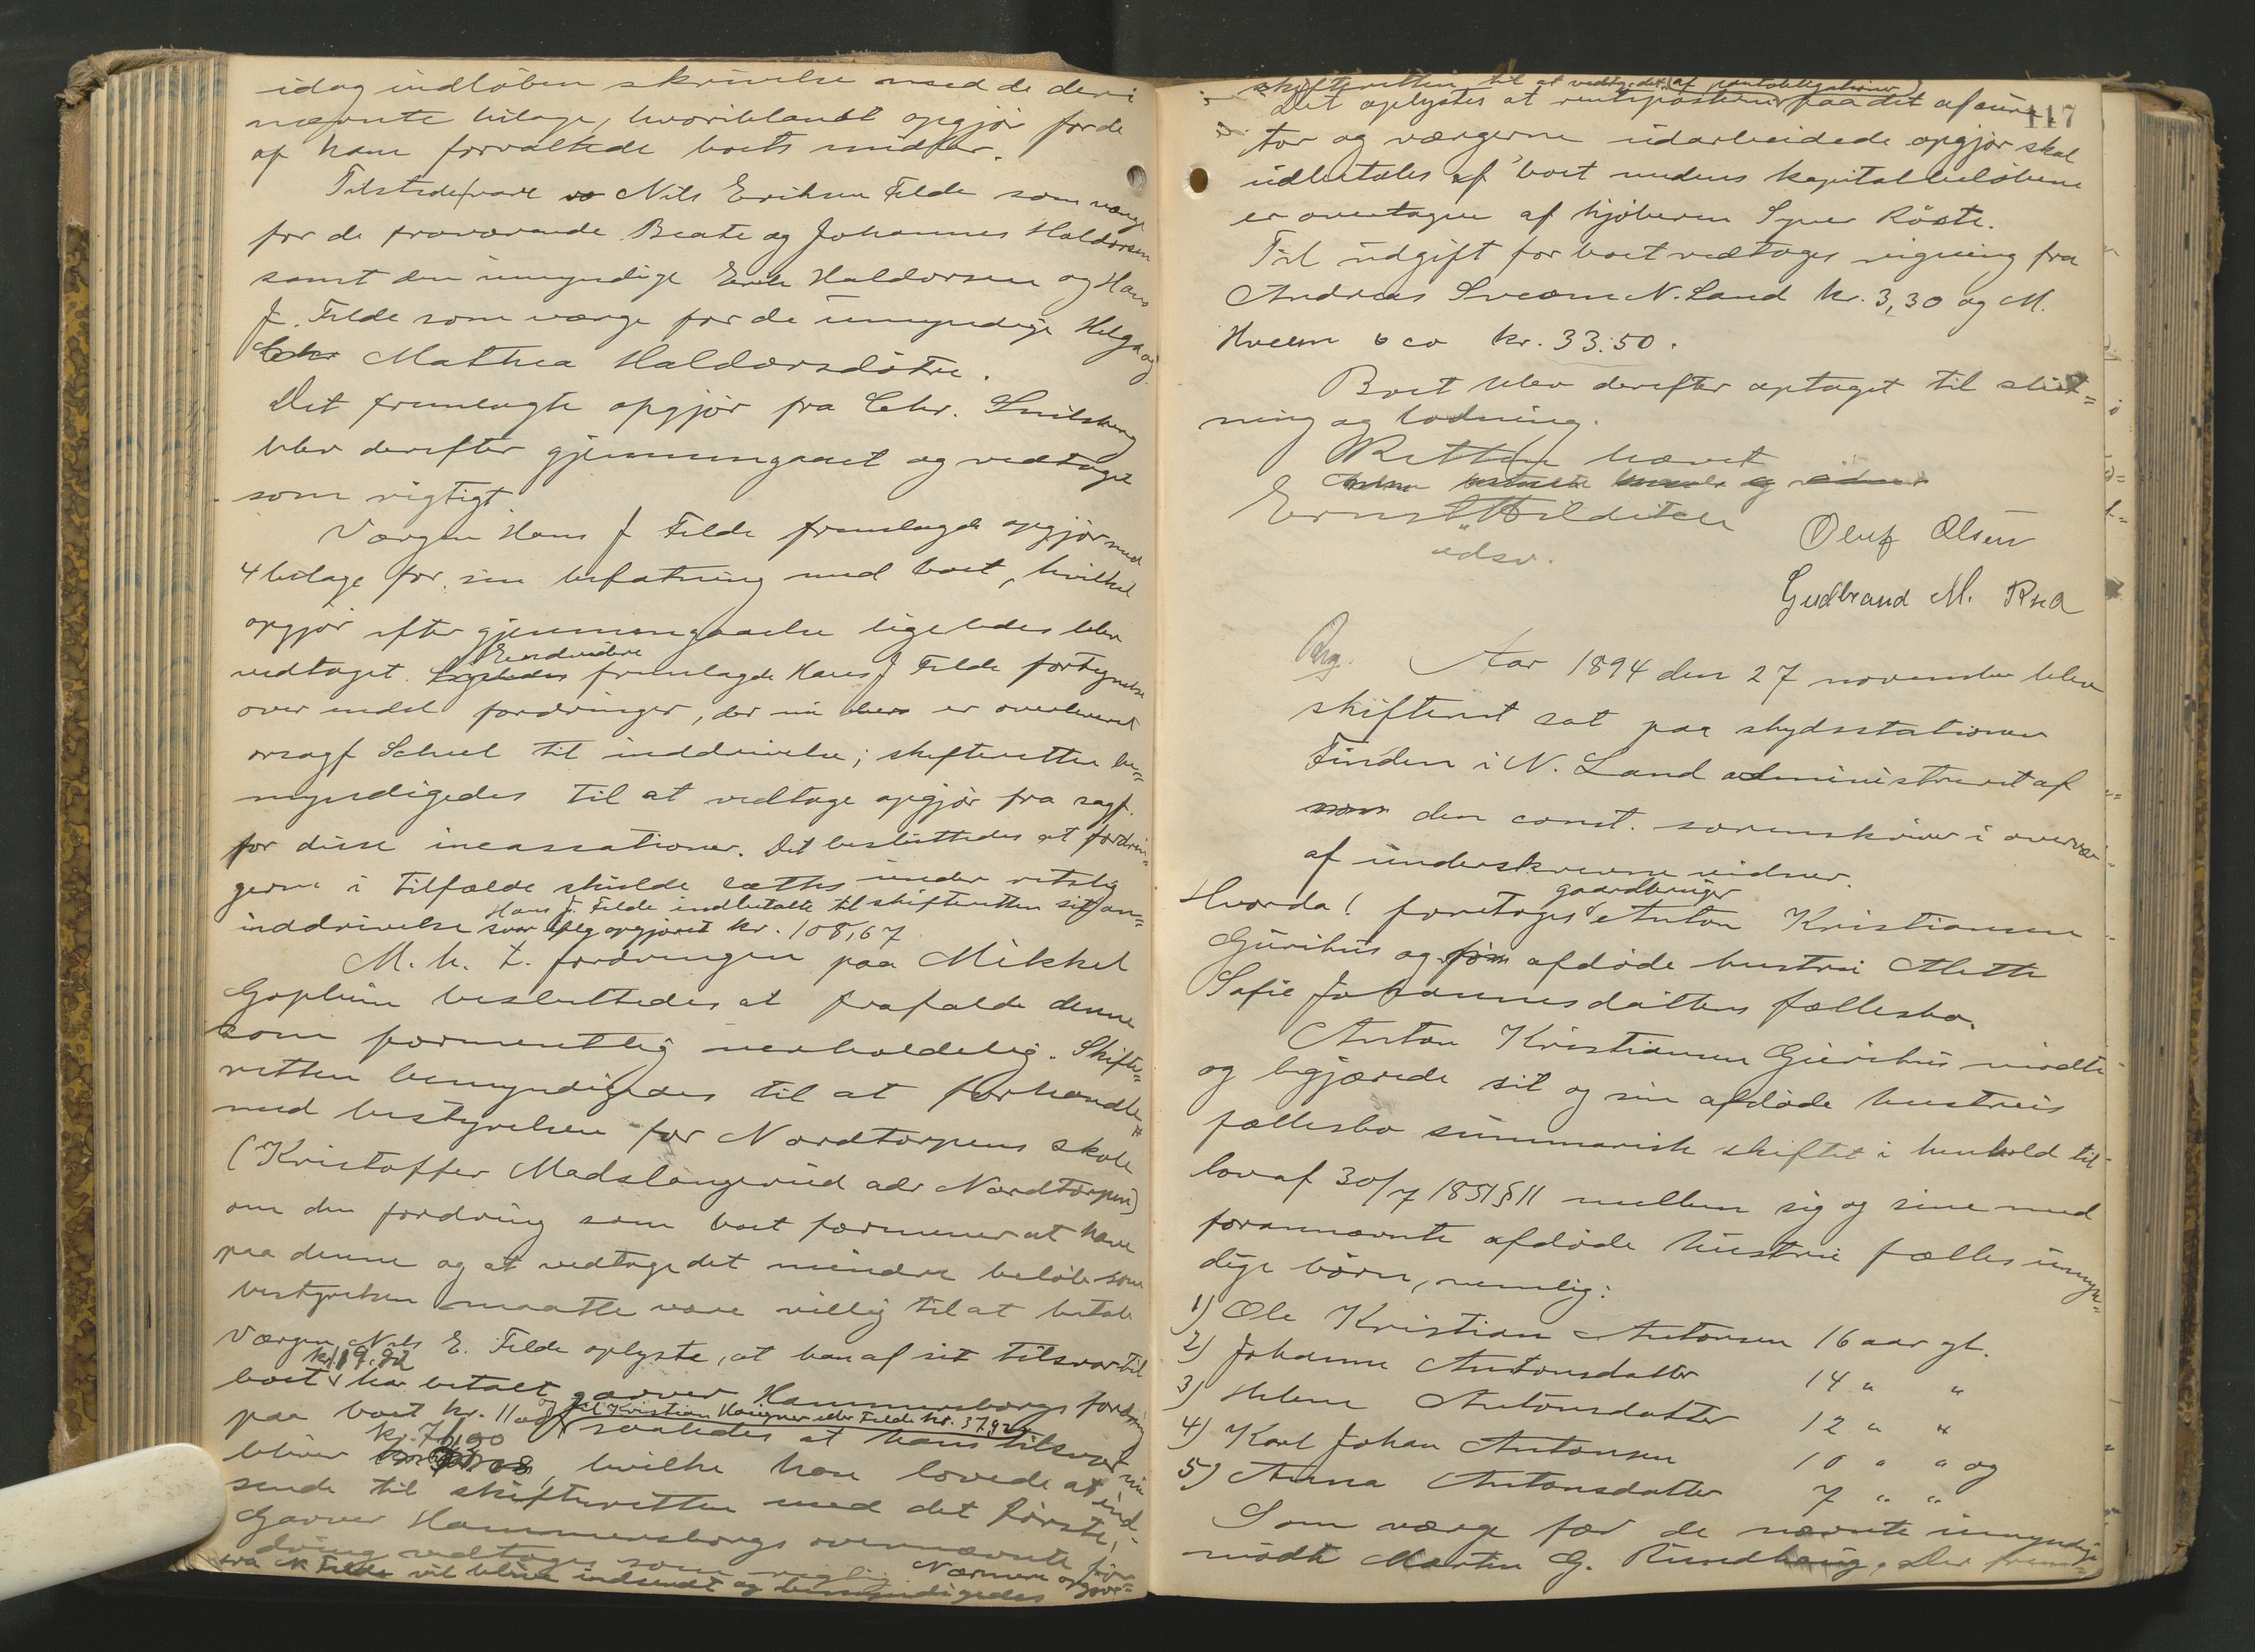 idag indløben skrivelse med de deri
nævnte bilage, hvoriblandt opgjør for de
af ham forvaltede boets midler.
Tilstedevar Nils Eriksen Felde som værge
for de fraværende Beate og Johannes Haldorsen
samt den umyndige Erik Haldorsen og Hans
J. Felde som værge for de umyndige Helga og
Mathea Haldorsdøtre.
Det fremlagte opgjør fra Chr. Smilsberg
blev derefter gjennemgaaet og vedtaget
som rigtigt.
Værgen Hans J Felde fremlagde opgjør med
4 bilage for sin befatning med boet, hvilket
opgjør efter gjennemgaaelse ligeledes blev
vedtaget. Endvidere fremlagde Hans J Felde fortegnelse
over endel fordringer, der nu er overleveret
orsagf Scheel til inddrivelse; skifteretten be=
myndigedes til at vedtage opgjør fra sagf.
for disse incassationer. Det besluttedes at fordrin=
gerne i tilfælde skulde sættes under retslig
inddrivelse Hans J. Felde indbetalte til skifteretten sit an=
svar ifølg opgjøret kr. 108,67
M. h. t. fordringen paa Mikkel
Goplum besluttedes at frafalde denne
som formentlig uerholdelig. Skifte=
retten bemyndigedes til at forhandle
med bestyrelsen for Nordtorpens skole
(Kristoffer Madslangerud adr Nordtorpen)
om den fordring som boet formener at have
paa denne og at vedtage det mindre beløb som
bestyrelsen maatte være villig til at betale
Værgen Nils E. Felde oplyste, at han af sit tilsvar til
boet kr. 119.92 har betalt garver Hammersborgs fordring
paa boet kr. 11 og til Kristian Haugner eller Felde kr. 37,92
saaledes at hans tilsvar nu
bliver kr. 71,00, hvilke han lovede at ind=
sende til skifteretten med det første.
Garver Hammersborgs ovennævnte for=
dring vedtages som rigtig. Nærmere opgjør
fra N. Felde vil blive indsendt og bemyndigedes
117
skifteretten til at vedtage det.
Det oplystes at renteposterne af pantobligationer paa det af cura=
tor og værgerne udarbeidede opgjør skal
udbetales af boet medens kapitalbeløbene
er overtagne af kjøberen Syver Røste.
Til udgift for boet vedtages regning fra
Andreas Sveom N. Land kr. 3,30 og M.
Hveem & co kr. 33.50.
Boet blev derefter optaget til slut=
ning og lodning.
Retten hævet
Ernst Hilditch
edsv.
Oluf Olsen
Gudbrand M. Rud
Aar 1894 den 27 november blev
skifteret sat paa skydsstationen
Finden i N. Land administreret af
den const. sorenskriver i overvær
af underskrevne vidner.
Hvorda! foretoges gaardbruger Anton Kristiansen
Gurihus og afdøde hustru Mette
Sofie Johannesdatters fællesbo.
Anton Kristiansen Gurihus mødte
og begjærede sit og sin afdøde hustrus
fællesbo summarisk skiftet i henhold til
lov af 30/7 1851 § 11 mellem sig og sine med
forannævnte afdøde hustru fælles umyn=
dige børn, nemlig:
1) Ole Kristian Antonsen 16 aar gl.
2) Johanne Antonsdatter 14 " "
3) Helene Antonsdatter 12 " "
4) Karl Johan Antonsen 10 " " og
5) Anna Antonsdatter 7 " "
Som værge for de nævnte umyndige
mødte Martin G. Rundhaug. Der frem=